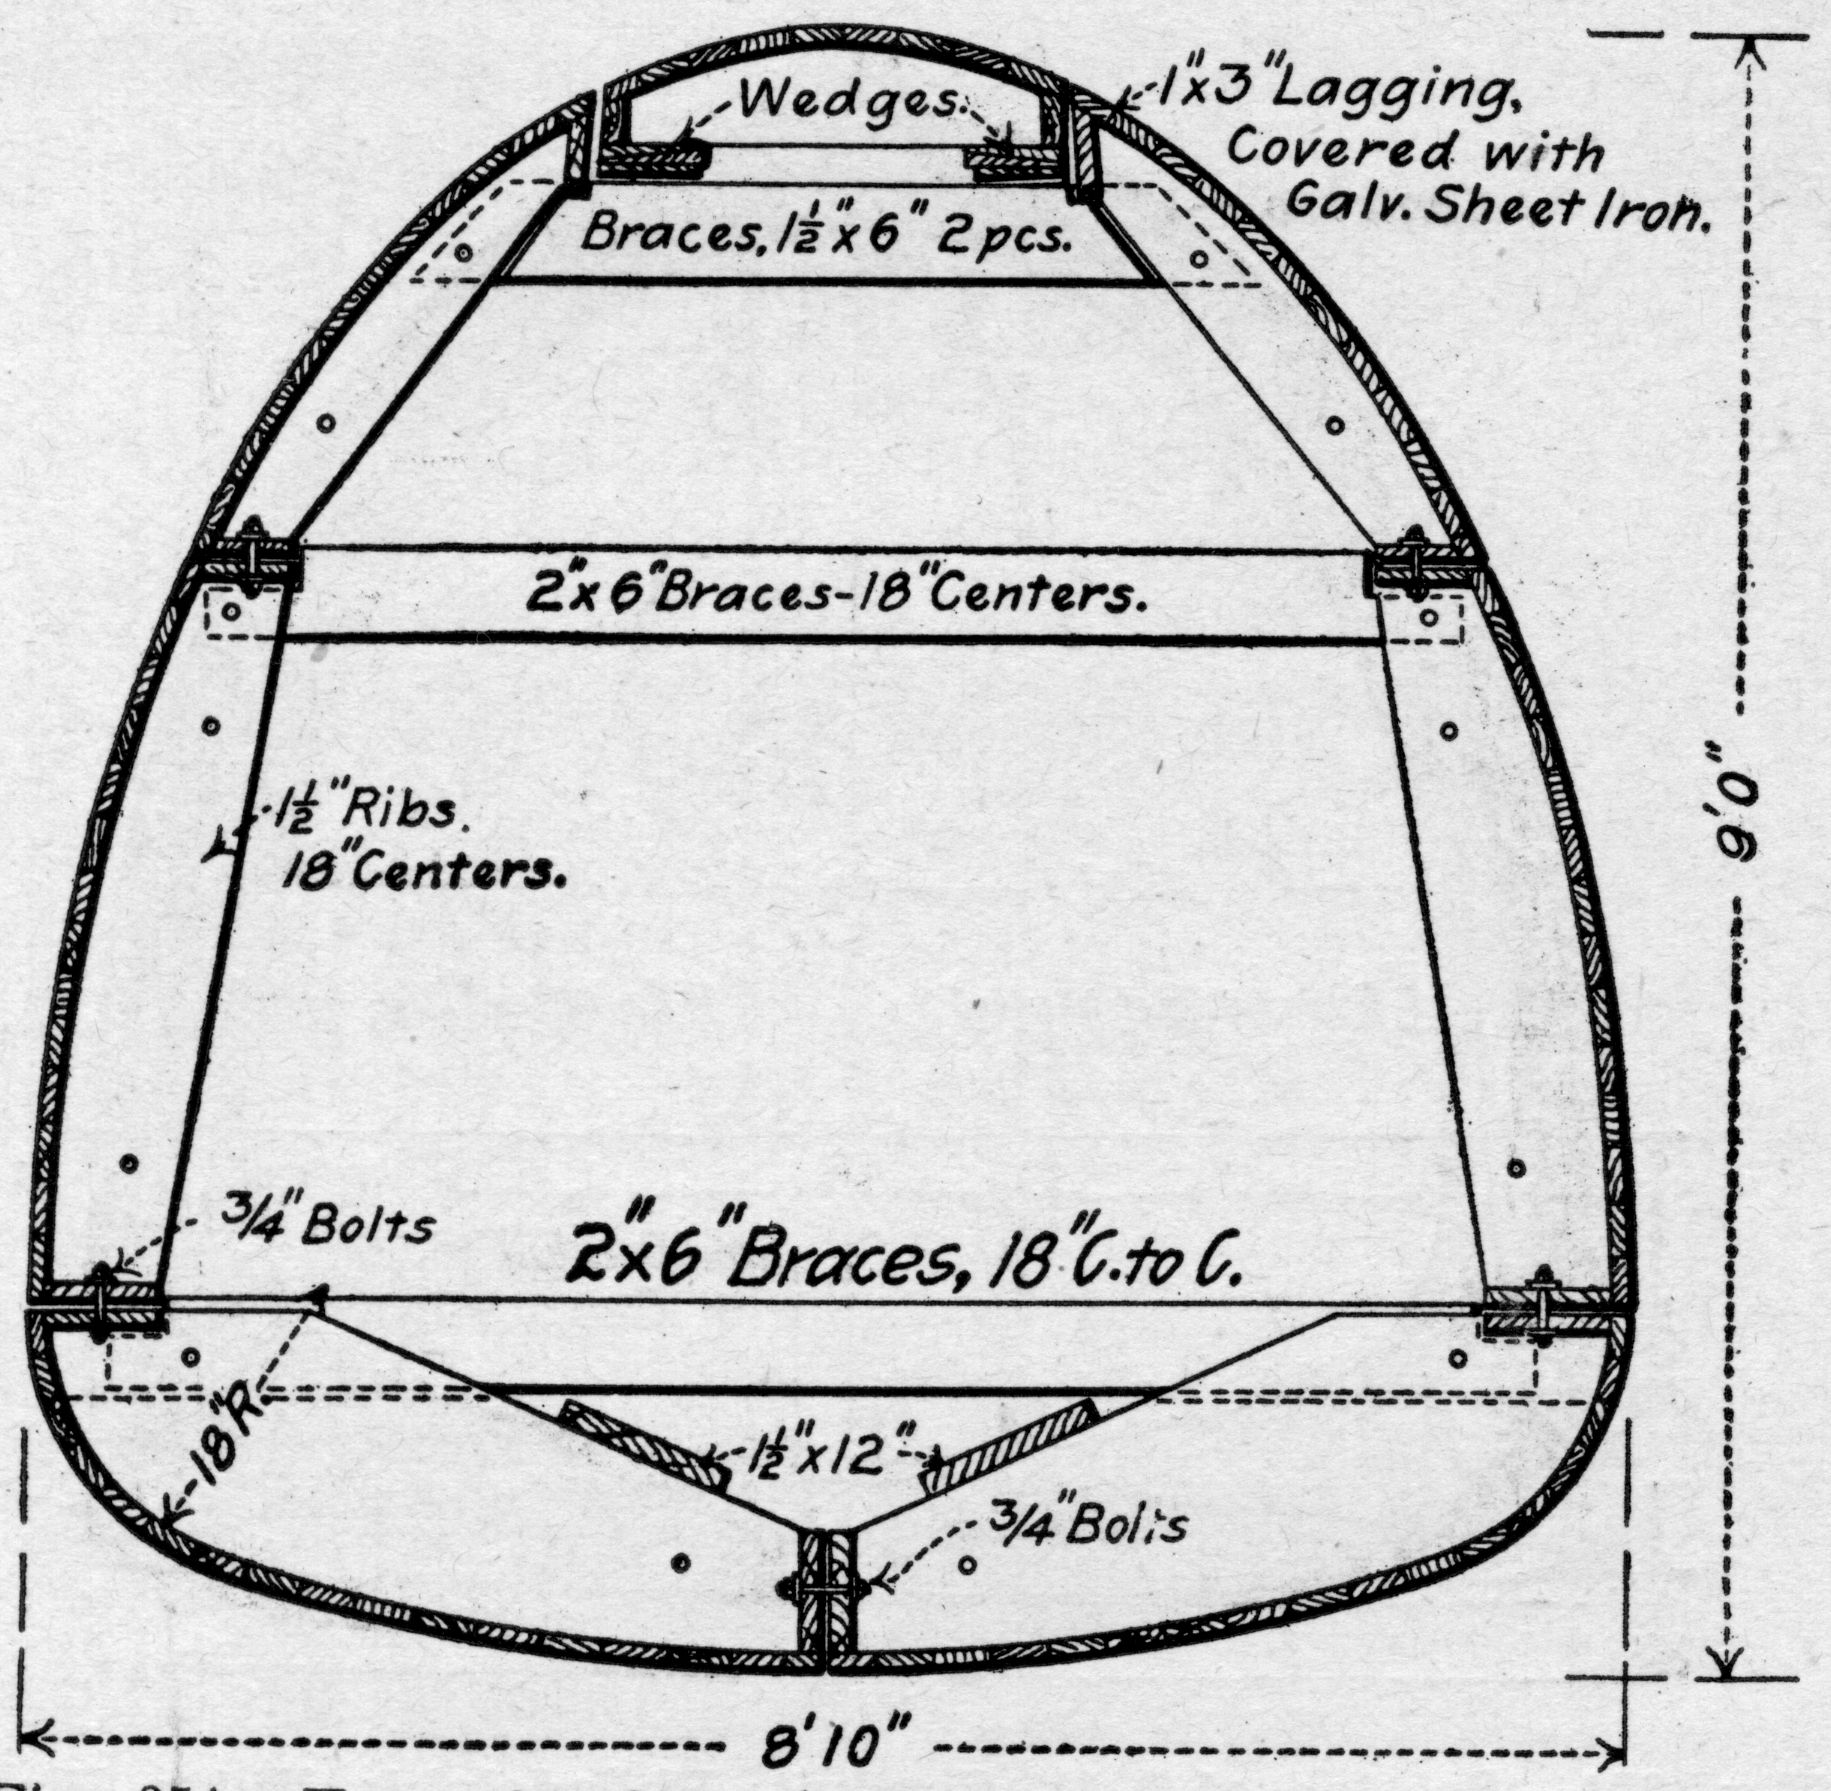 Wedges.
1"x3" Lagging,
Covered with
Galv. Sheet Iron.
Braces, 1½"x6" 2 pcs.
2"x6" Braces-18" Centers.
9'0"
1½" Ribs.
18" Centers.
3/4" Bolts
2"x6" Braces, 18" C. to C.
18"R.
1½"x12"
3/4" Bolts
8'10"